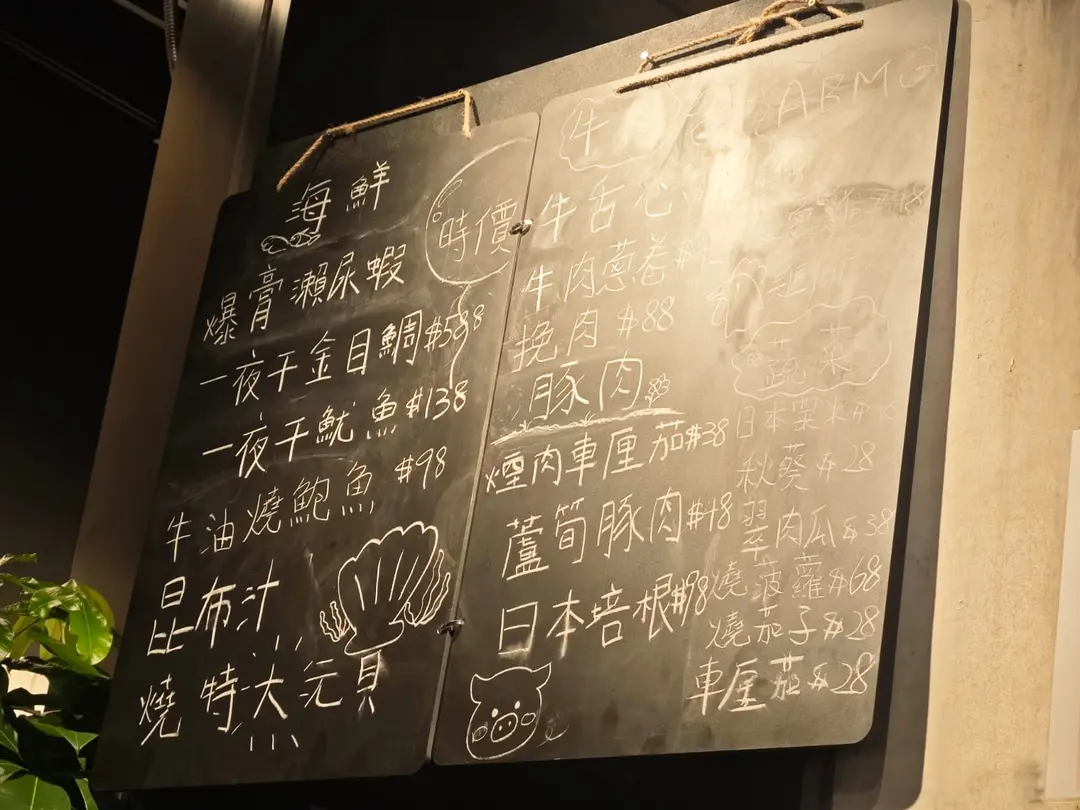 海鮮
時價
爆膏瀨尿蝦
一夜干金目鯛$588
一夜干魷魚$138
牛油燒鮑魚 $98
昆布汁
燒特大元貝
牛
牛舌心
牛肉蔥卷
挽肉 $88
豚肉
煙肉車厘茄$38
蘆筍豚肉$48
日本培根$98
蔬菜
日本粟米
秋葵$28
翠肉瓜$38
燒菠蘿$68
燒茄子$28
車厘茄$28